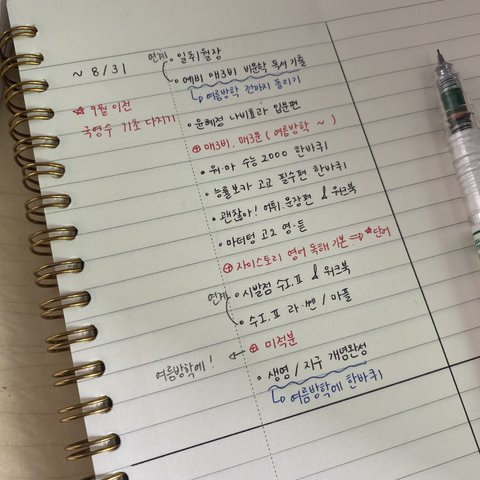 ~ 8/31
☆ 9월 이전
국영수 기초 다지기
연계
• 일취월장
• 예비 매3비 비문학 독서 기출
↳ 여름방학 전까지 돌리기
• 윤혜정 나비효과 입문편
⊕ 매3비, 매3문 (여름방학 ~)
• 워마 수능 2000 한바퀴
• 능률보카 고교 필수편 한바퀴
• 괜찮아! 어휘, 문장편 & 워크북
• 마더텅 고2 영·듣
⊕ 자이스토리 영어 독해 기본 ⇒ ☆단어
연계
• 시발점 수I,II & 워크북
• 수I,II 라·쎈 / 마플
⊕ 미적분
여름방학에! ←
• 생명 / 지구 개념완성
↳ 여름방학에 한바퀴